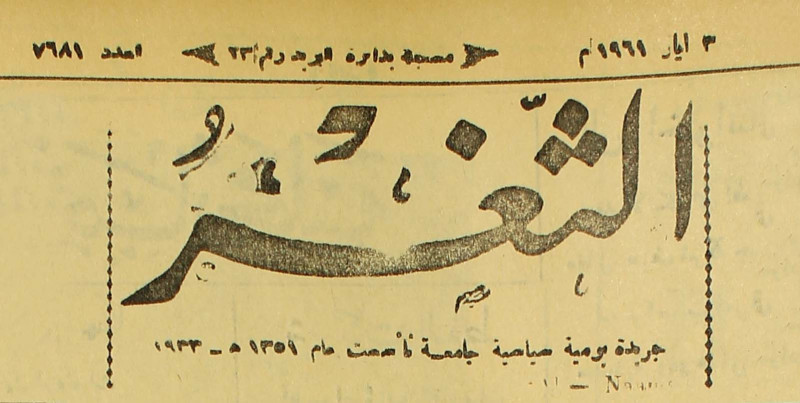 ٣ أيار ١٩٦١م مسجلة بدائرة البريد رقم ٢٣ العدد ٧٦٨١
الثَّغْرُ
جريدة يومية سياسية جامعة تأسست عام ١٣٥١ ه ـ ١٩٣٣